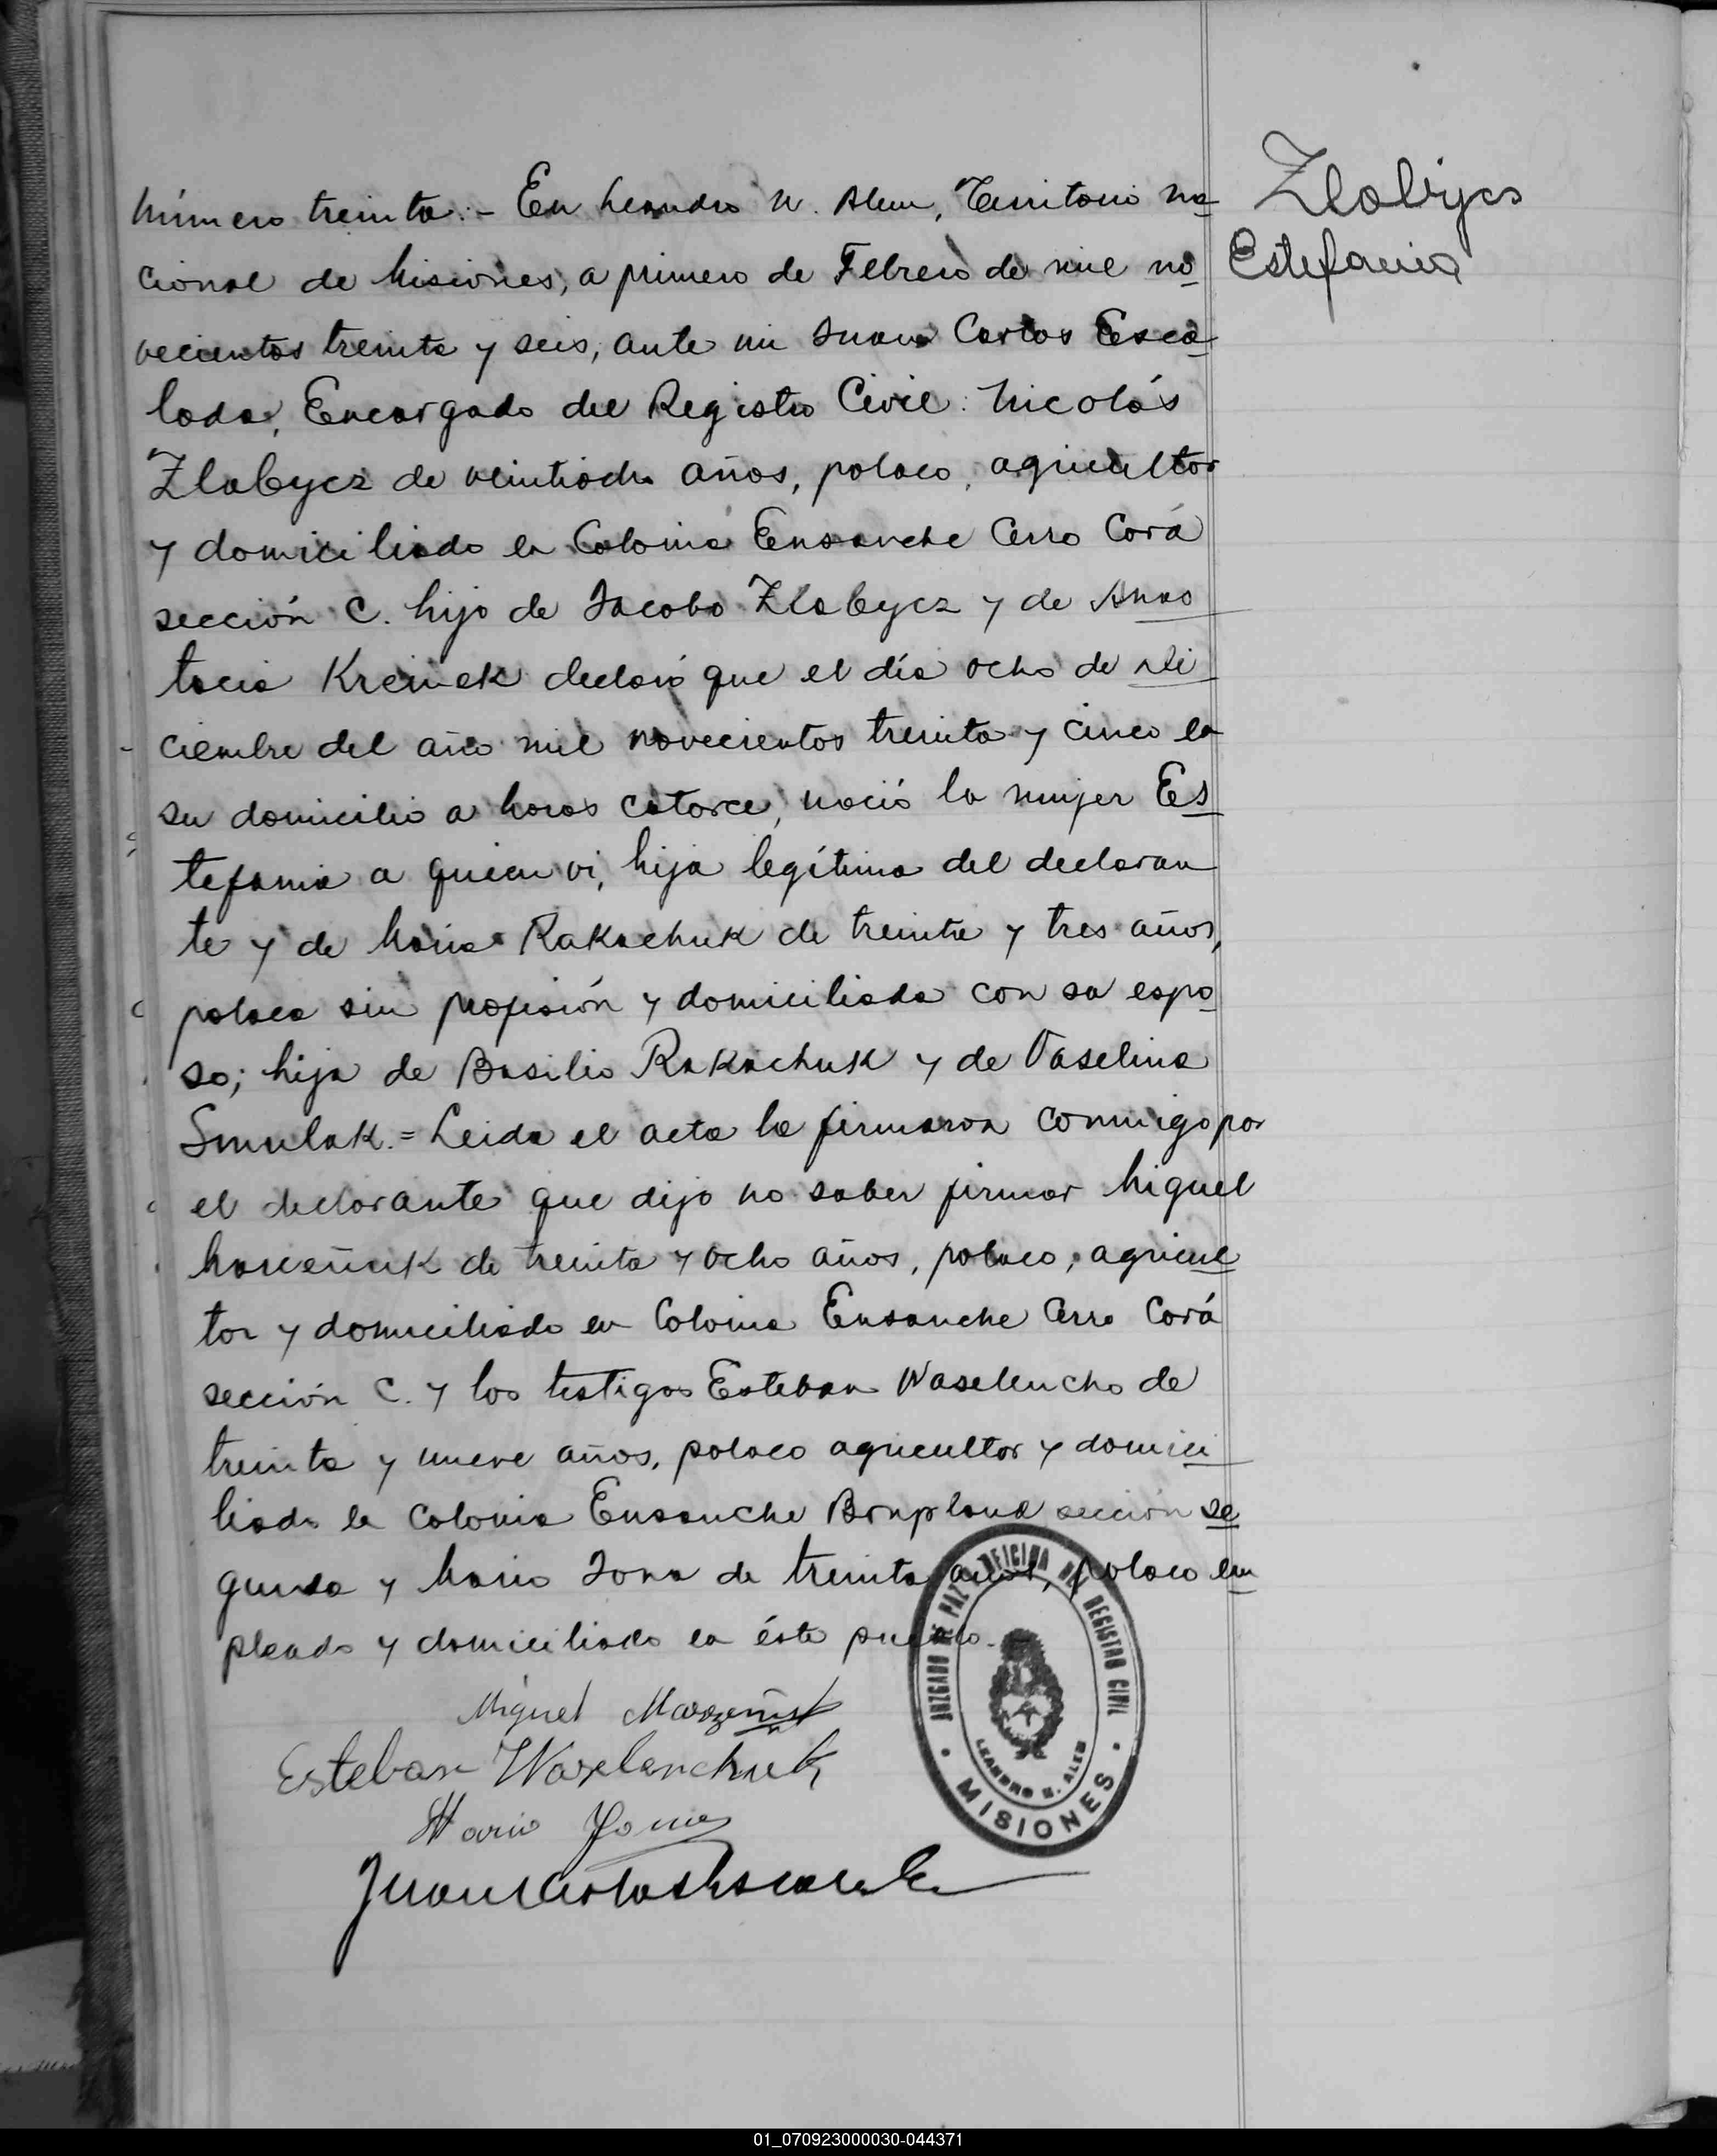 Número treinta.- En Leandro N. Alem, Territorio na
cional de Misiones, a primero de Febrero de mil no
vecientos treinta y seis, ante mi Juan Carlos Esca
lada, Encargado del Registro Civil: Nicolás
Zlabycz de veintiocho años, polaco, agricultor
y domiciliado en Colonia Ensanche Cerro Corá
sección C. hijo de Jacobo Zlabycz y de Anas
tacia declaró que el día ocho de Di
ciembre del año mil novecientos treinta y cinco en
su domicilio a horas catorce, nació la mujer Es
tefania a quien vi, hija legítima del declaran
te y de Maria Rakachuk de treinta y tres años,
polaca sin profesión y domiciliada con su espo
so; hija de Basilio Rakachuk y de Vaselina
Smulak.= Leida el acta la firmaron conmigo por
el declarante que dijo no saber firmar Miguel
de treinta y ocho años, polaco, agricul
tor y domiciliado en Colonia Ensanche Cerro Corá
sección C. y los testigos Esteban Waselencho de
treinta y nueve años, polaco agricultor y domici
liado en Colonia Ensanche Bonpland sección se
gunda y Mario Jona de treinta años, polaco em
pleado y domiciliado en éste pueblo.-
Zlabycz
Estefania
Miguel
Esteban Waselenchuk
Mario
Juan Carlos Escalada
JUZGADO DE PAZ OFICINA DEL REGISTRO CIVIL
LEANDRO N. ALEM
MISIONES
01_070923000030-044371